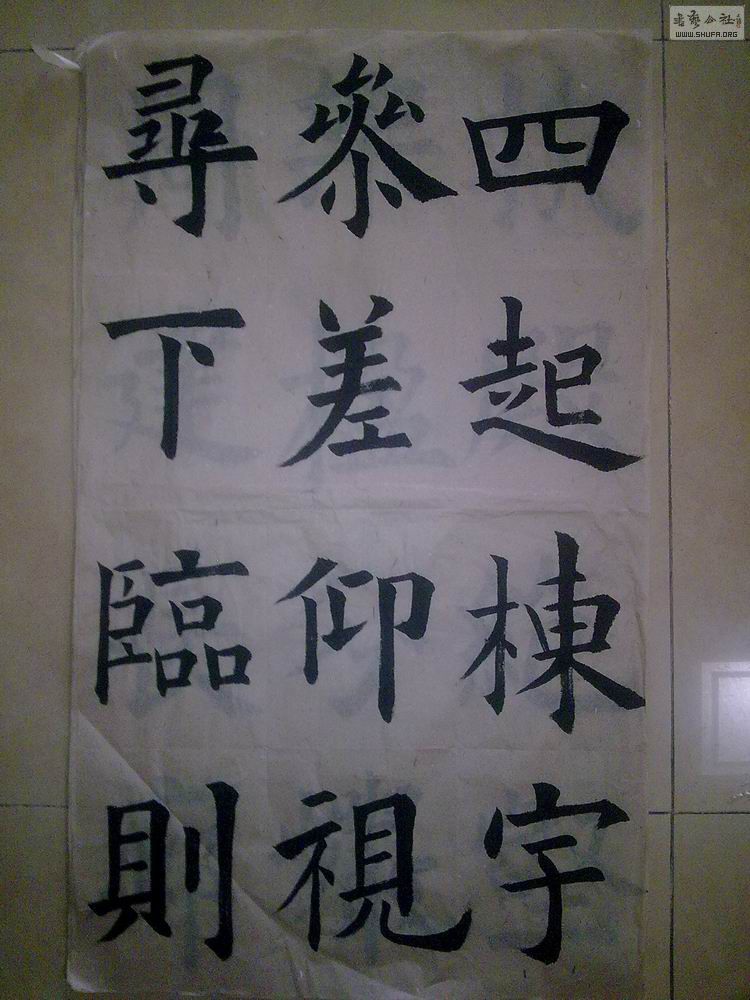 四起棟宇
參差仰視
尋下臨則
WWW.SHUFA.ORG